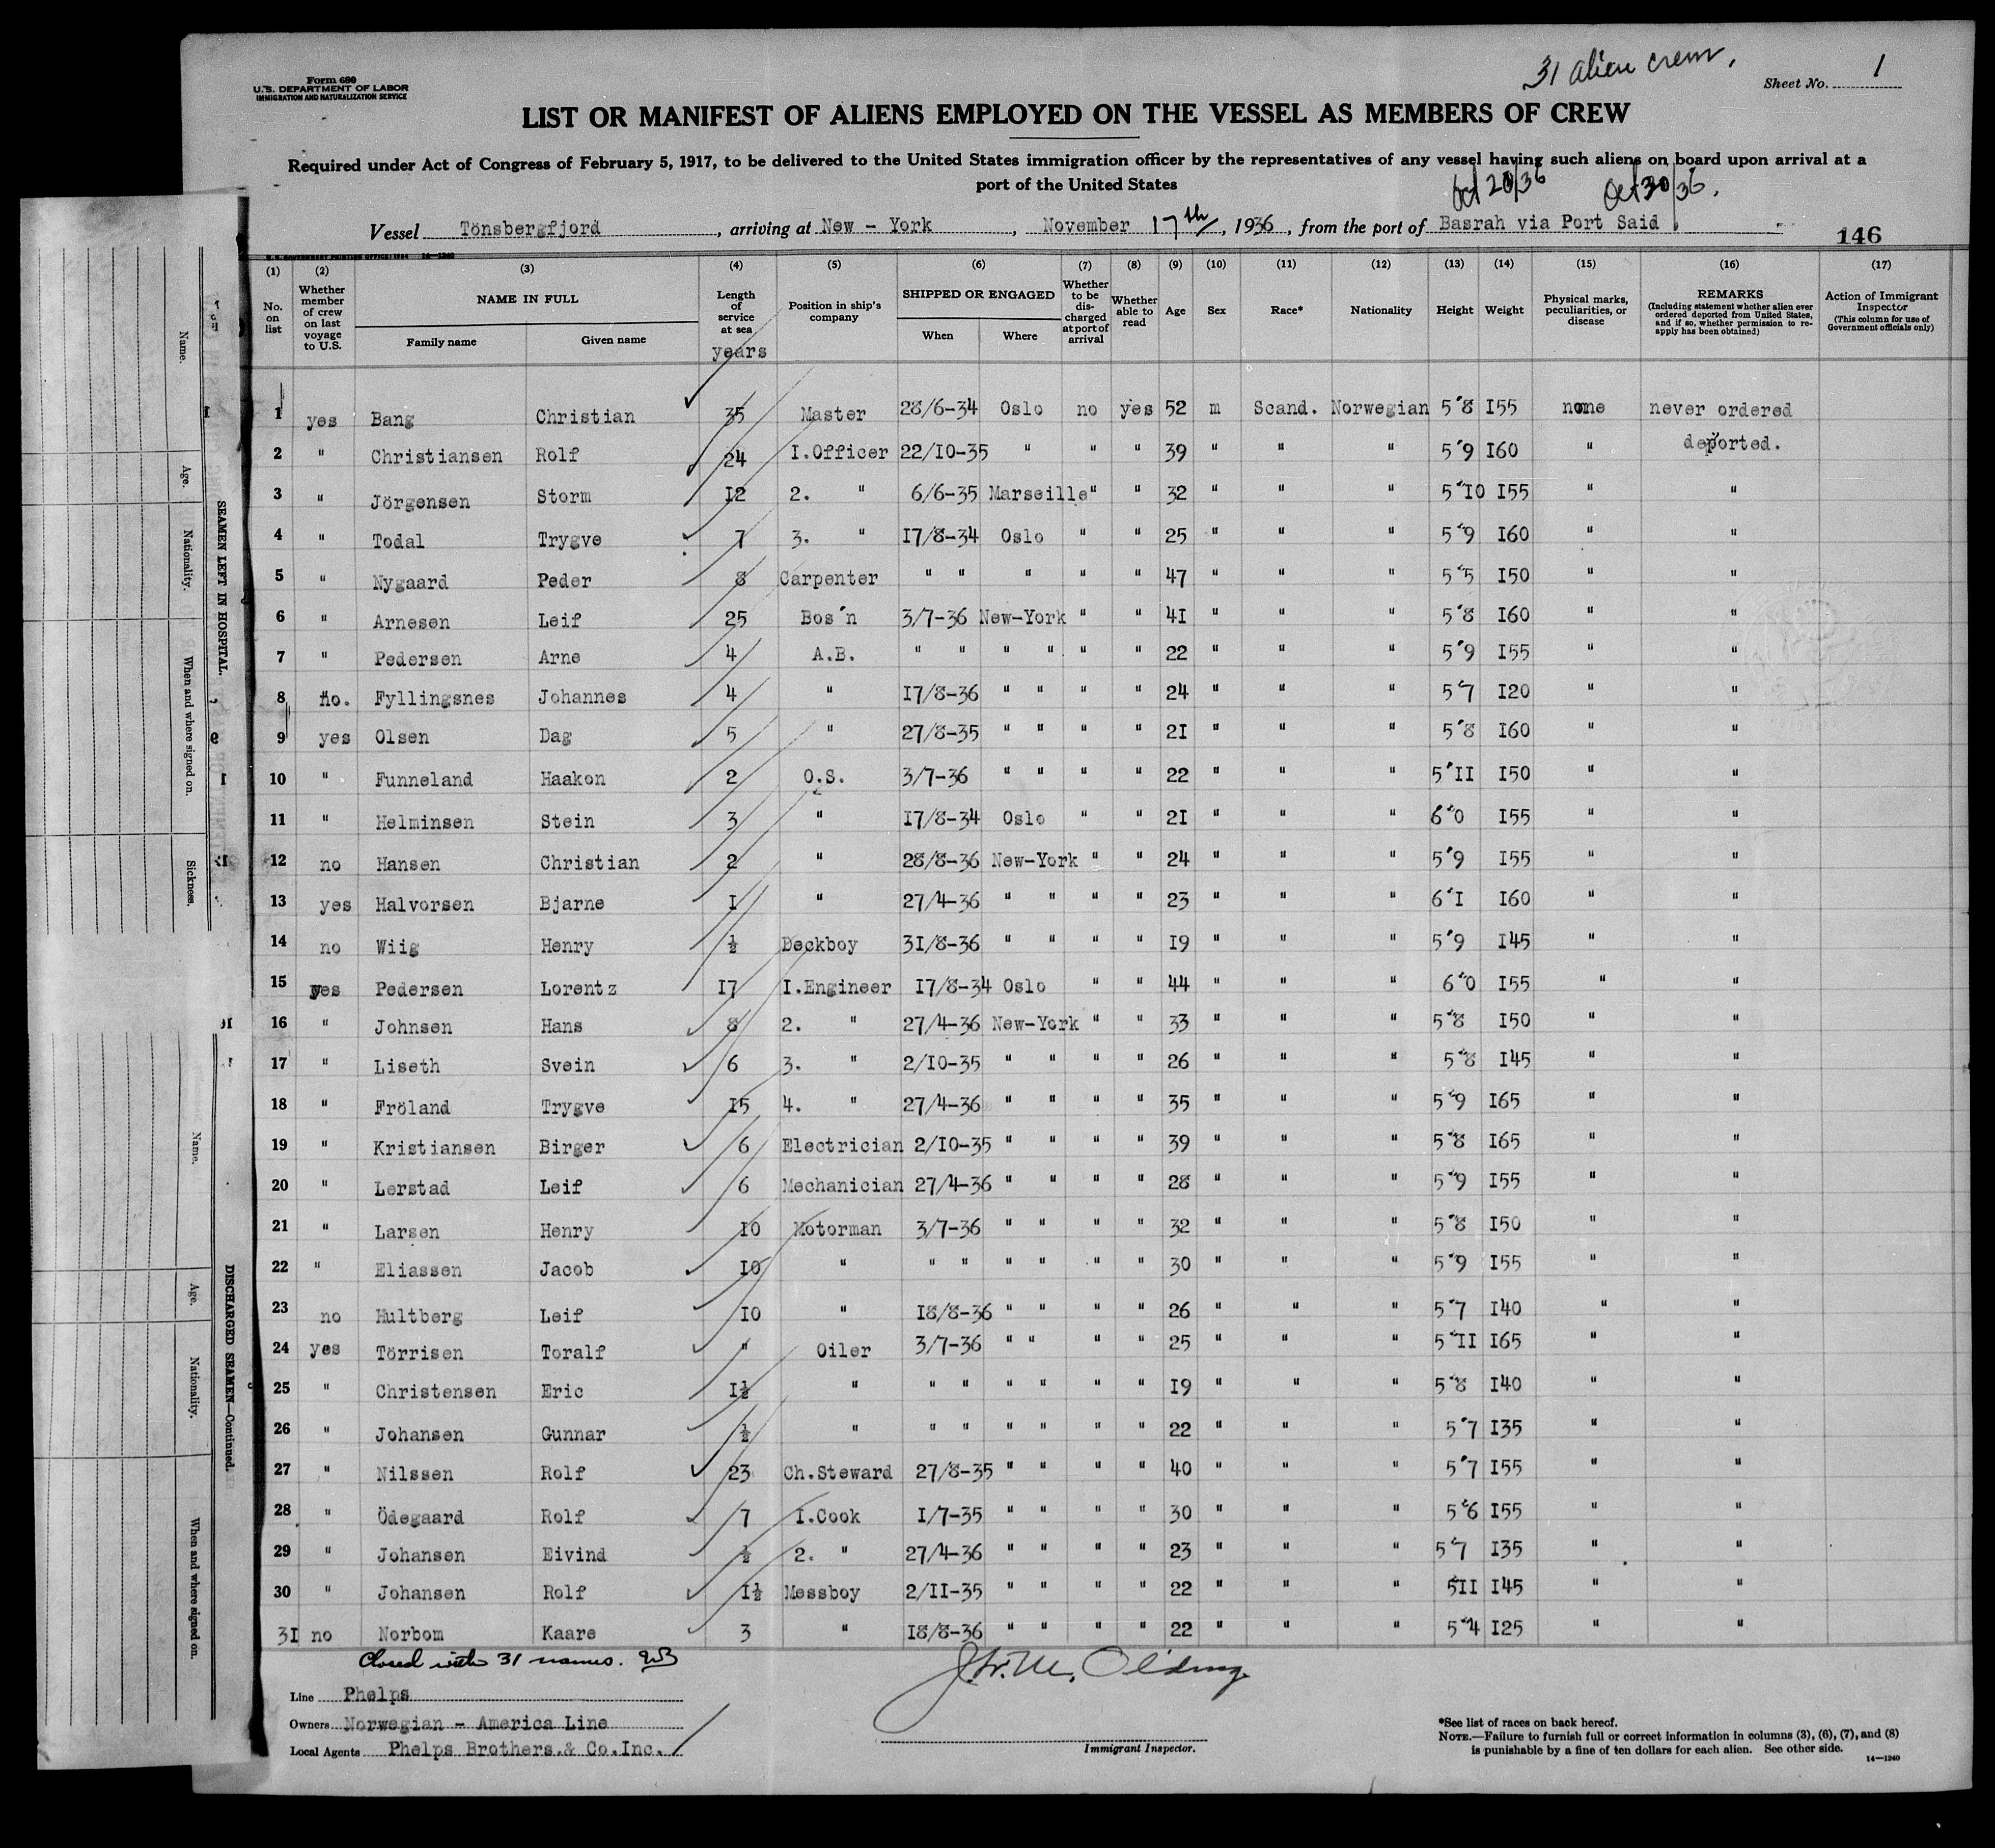 31 alien crew.
Form 680
U.S. DEPARTMENT OF LABOR
IMMIGRATION AND NATURALIZATION SERVICE
Sheet No. 1
LIST OR MANIFEST OF ALIENS EMPLOYED ON THE VESSEL AS MEMBERS OF CREW
Required under Act of Congress of February 5, 1917, to be delivered to the United States immigration officer by the representatives of any vessel having such aliens on board upon arrival at a
port of the United States
Oct 20/36 Oct 30/36.
Vessel Tönsbergfjord, arriving at New - York, November 17th, 1936, from the port of Basrah via Port Said
146
(1) (2) (3) (4) (5) (6) (7) (8) (9) (10) (11) (12) (13) (14) (15) (16) (17)
No. on list
Whether member of crew on last voyage to U.S.
NAME IN FULL
Family name Given name
Length of service at sea
years
Position in ship's company
SHIPPED OR ENGAGED
When Where
Whether to be discharged at port of arrival
Whether able to read
Age
Sex
Race*
Nationality
Height
Weight
Physical marks, peculiarities, or disease
REMARKS
(Including statement whether alien ever ordered deported from United States, and if so, whether permission to reapply has been obtained)
Action of Immigrant Inspector
(This column for use of Government officials only)
1 yes Bang Christian 35 Master 28/6-34 Oslo no yes 52 m Scand. Norwegian 5'8 I55 none never ordered
deported.
2 " Christiansen Rolf 24 I.Officer 22/I0-35 " " " 39 " " " 5'9 I60 "
3 " Jörgensen Storm I2 2. " 6/6-35 Marseille " " 32 " " " 5'I0 I55 " "
4 " Todal Trygve 7 3. " I7/8-34 Oslo " " 25 " " " 5'9 I60 " "
5 " Nygaard Peder 8 Carpenter " " " " " 47 " " " 5'5 I50 " "
6 " Arnesen Leif 25 Bos'n 3/7-36 New-York " " 4I " " " 5'8 I60 " "
7 " Pedersen Arne 4 A.B. " " " " " " 22 " " " 5'9 I55 " "
8 no. Fyllingsnes Johannes 4 " I7/8-36 " " " " 24 " " " 5'7 I20 " "
9 yes Olsen Dag 5 " 27/8-35 " " " " 2I " " " 5'8 I60 " "
10 " Funneland Haakon 2 O.S. 3/7-36 " " " " 22 " " " 5'II I50 " "
11 " Helminsen Stein 3 " I7/8-34 Oslo " " 2I " " " 6'0 I55 " "
12 no Hansen Christian 2 " 28/8-36 New-York " " 24 " " " 5'9 I55 " "
13 yes Halvorsen Bjarne I " 27/4-36 " " " " 23 " " " 6'I I60 " "
14 no Wiig Henry ½ Deckboy 3I/8-36 " " " " I9 " " " 5'9 I45 " "
15 yes Pedersen Lorentz I7 I.Engineer I7/8-34 Oslo " " 44 " " " 6'0 I55 " "
16 " Johnsen Hans 8 2. " 27/4-36 New-York " " 33 " " " 5'8 I50 " "
17 " Liseth Svein 6 3. " 2/I0-35 " " " " 26 " " " 5'8 I45 " "
18 " Fröland Trygve I5 4. " 27/4-36 " " " " 35 " " " 5'9 I65 " "
19 " Kristiansen Birger 6 Electrician 2/I0-35 " " " " 39 " " " 5'8 I65 " "
20 " Lerstad Leif 6 Mechanician 27/4-36 " " " " 28 " " " 5'9 I55 " "
21 " Larsen Henry I0 Motorman 3/7-36 " " " " 32 " " " 5'8 I50 " "
22 " Eliassen Jacob I0 " " " " " " " 30 " " " 5'9 I55 " "
23 no Hultberg Leif I0 " I8/8-36 " " " " 26 " " " 5'7 I40 " "
24 yes Törrisen Toralf " Oiler 3/7-36 " " " " 25 " " " 5'II I65 " "
25 " Christensen Eric I½ " " " " " " " I9 " " " 5'8 I40 " "
26 " Johansen Gunnar ½ " " " " " " " 22 " " " 5'7 I35 " "
27 " Nilssen Rolf 23 Ch.Steward 27/8-35 " " " " 40 " " " 5'7 I55 " "
28 " Ödegaard Rolf 7 I.Cook I/7-35 " " " " 30 " " " 5'6 I55 " "
29 " Johansen Eivind ½ 2. " 27/4-36 " " " " 23 " " " 5'7 I35 " "
30 " Johansen Rolf I½ Messboy 2/II-35 " " " " 22 " " " 5'II I45 " "
3I no Norbom Kaare 3 " I8/8-36 " " " " 22 " " " 5'4 I25 " "
Closed with 31 names.
Line Phelps
Owners Norwegian - America Line
Local Agents Phelps Brothers.& Co.Inc.
Immigrant Inspector.
*See list of races on back hereof.
NOTE.—Failure to furnish full or correct information in columns (3), (6), (7), and (8)
is punishable by a fine of ten dollars for each alien. See other side.
14—1240
SEAMEN LEFT IN HOSPITAL.
Name.
Age.
Nationality.
When and where signed on.
Sickness.
DISCHARGED SEAMEN—Continued.
Name.
Age.
Nationality.
When and where signed on.